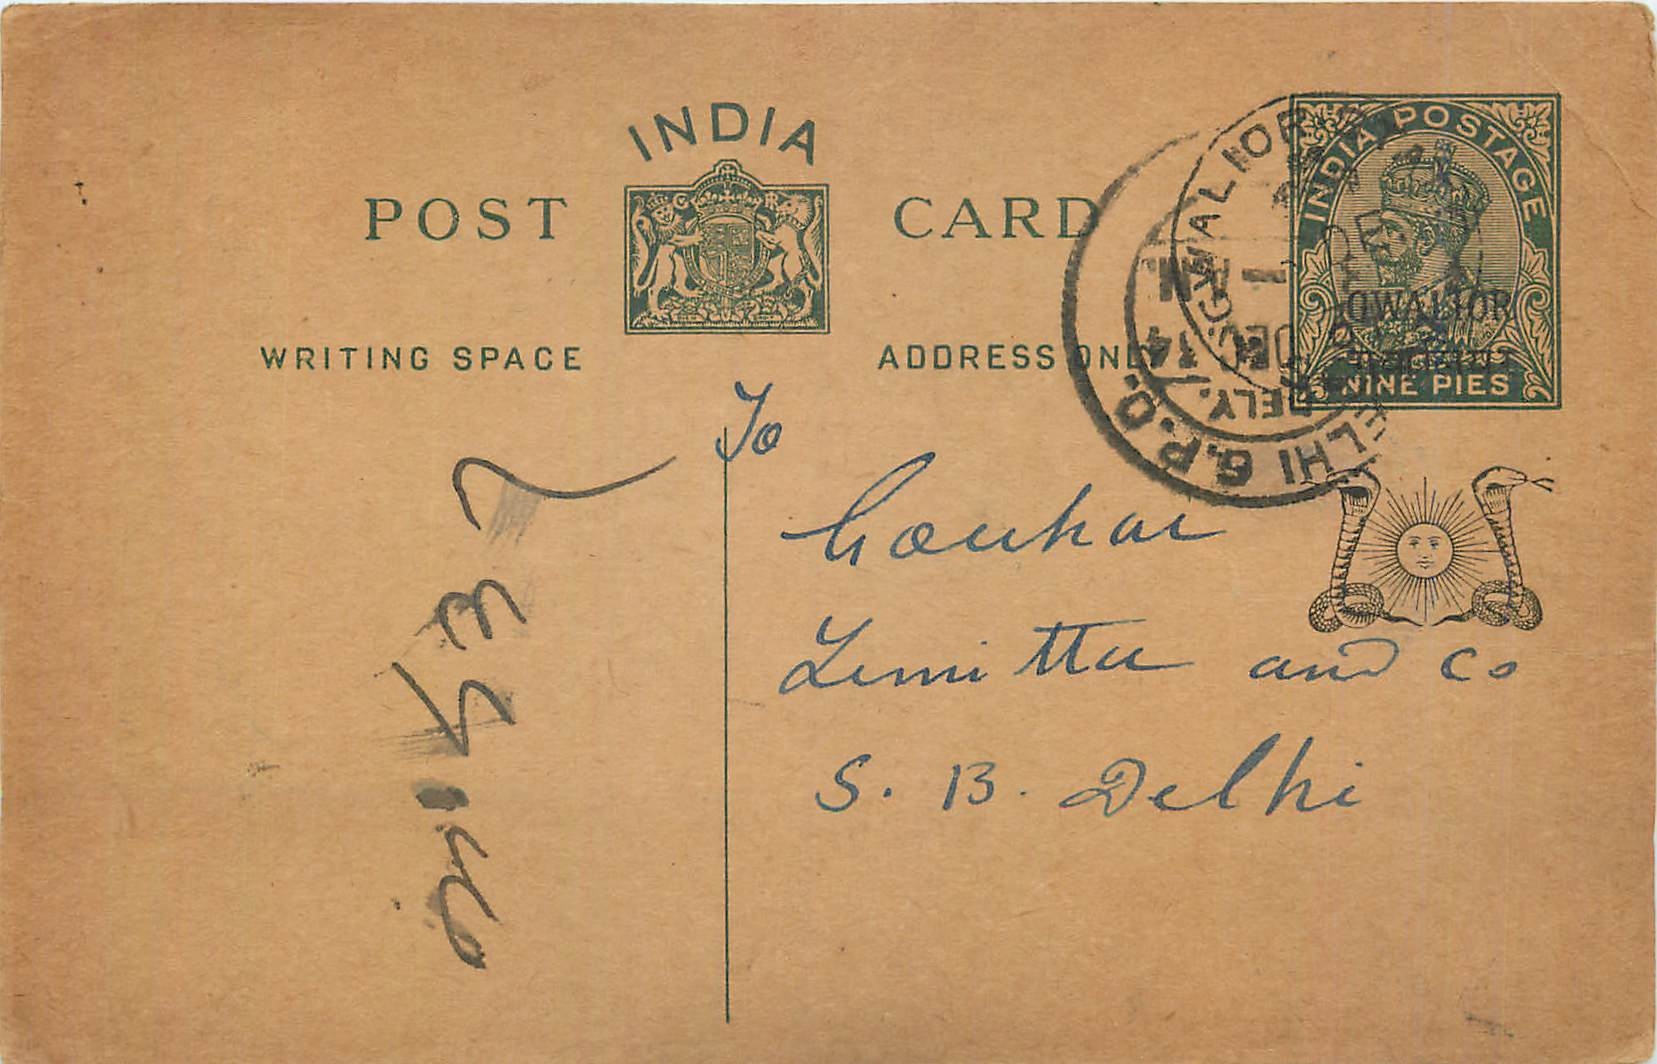 INDIA
POST CARD
WRITING SPACE
ADDRESS ONLY
INDIA POSTAGE
GWALIOR
NINE PIES
GWALIOR
DELHI G.P.O.
DELY.
DEC 34
To
Limitted and Co
S. B. Delhi